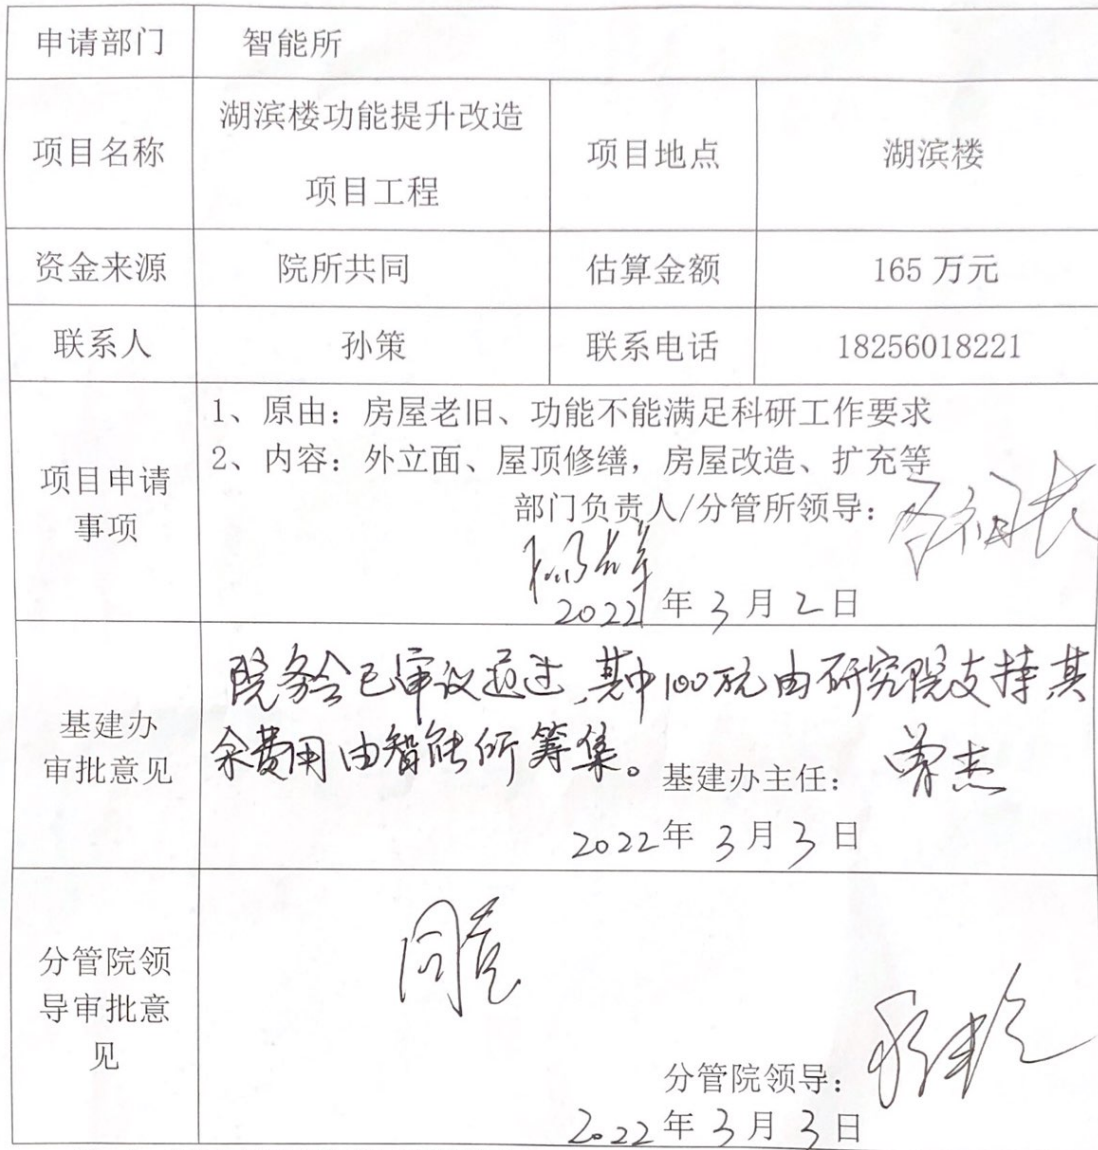 申请部门 智能所
项目名称 湖滨楼功能提升改造
项目工程 项目地点 湖滨楼
资金来源 院所共同 估算金额 165 万元
联系人 孙策 联系电话 18256018221
项目申请
事项
1、原由：房屋老旧、功能不能满足科研工作要求
2、内容：外立面、屋顶修缮，房屋改造、扩充等
部门负责人/分管所领导：
2022 年 3 月 2 日
基建办
审批意见
院务会已审议通过，其中100万元由研究院支持其
余费用由智能所筹集。
基建办主任： 曾杰
2022年 3月 3日
分管院领
导审批意
见
同意
分管院领导：
2022 年 3 月 3 日